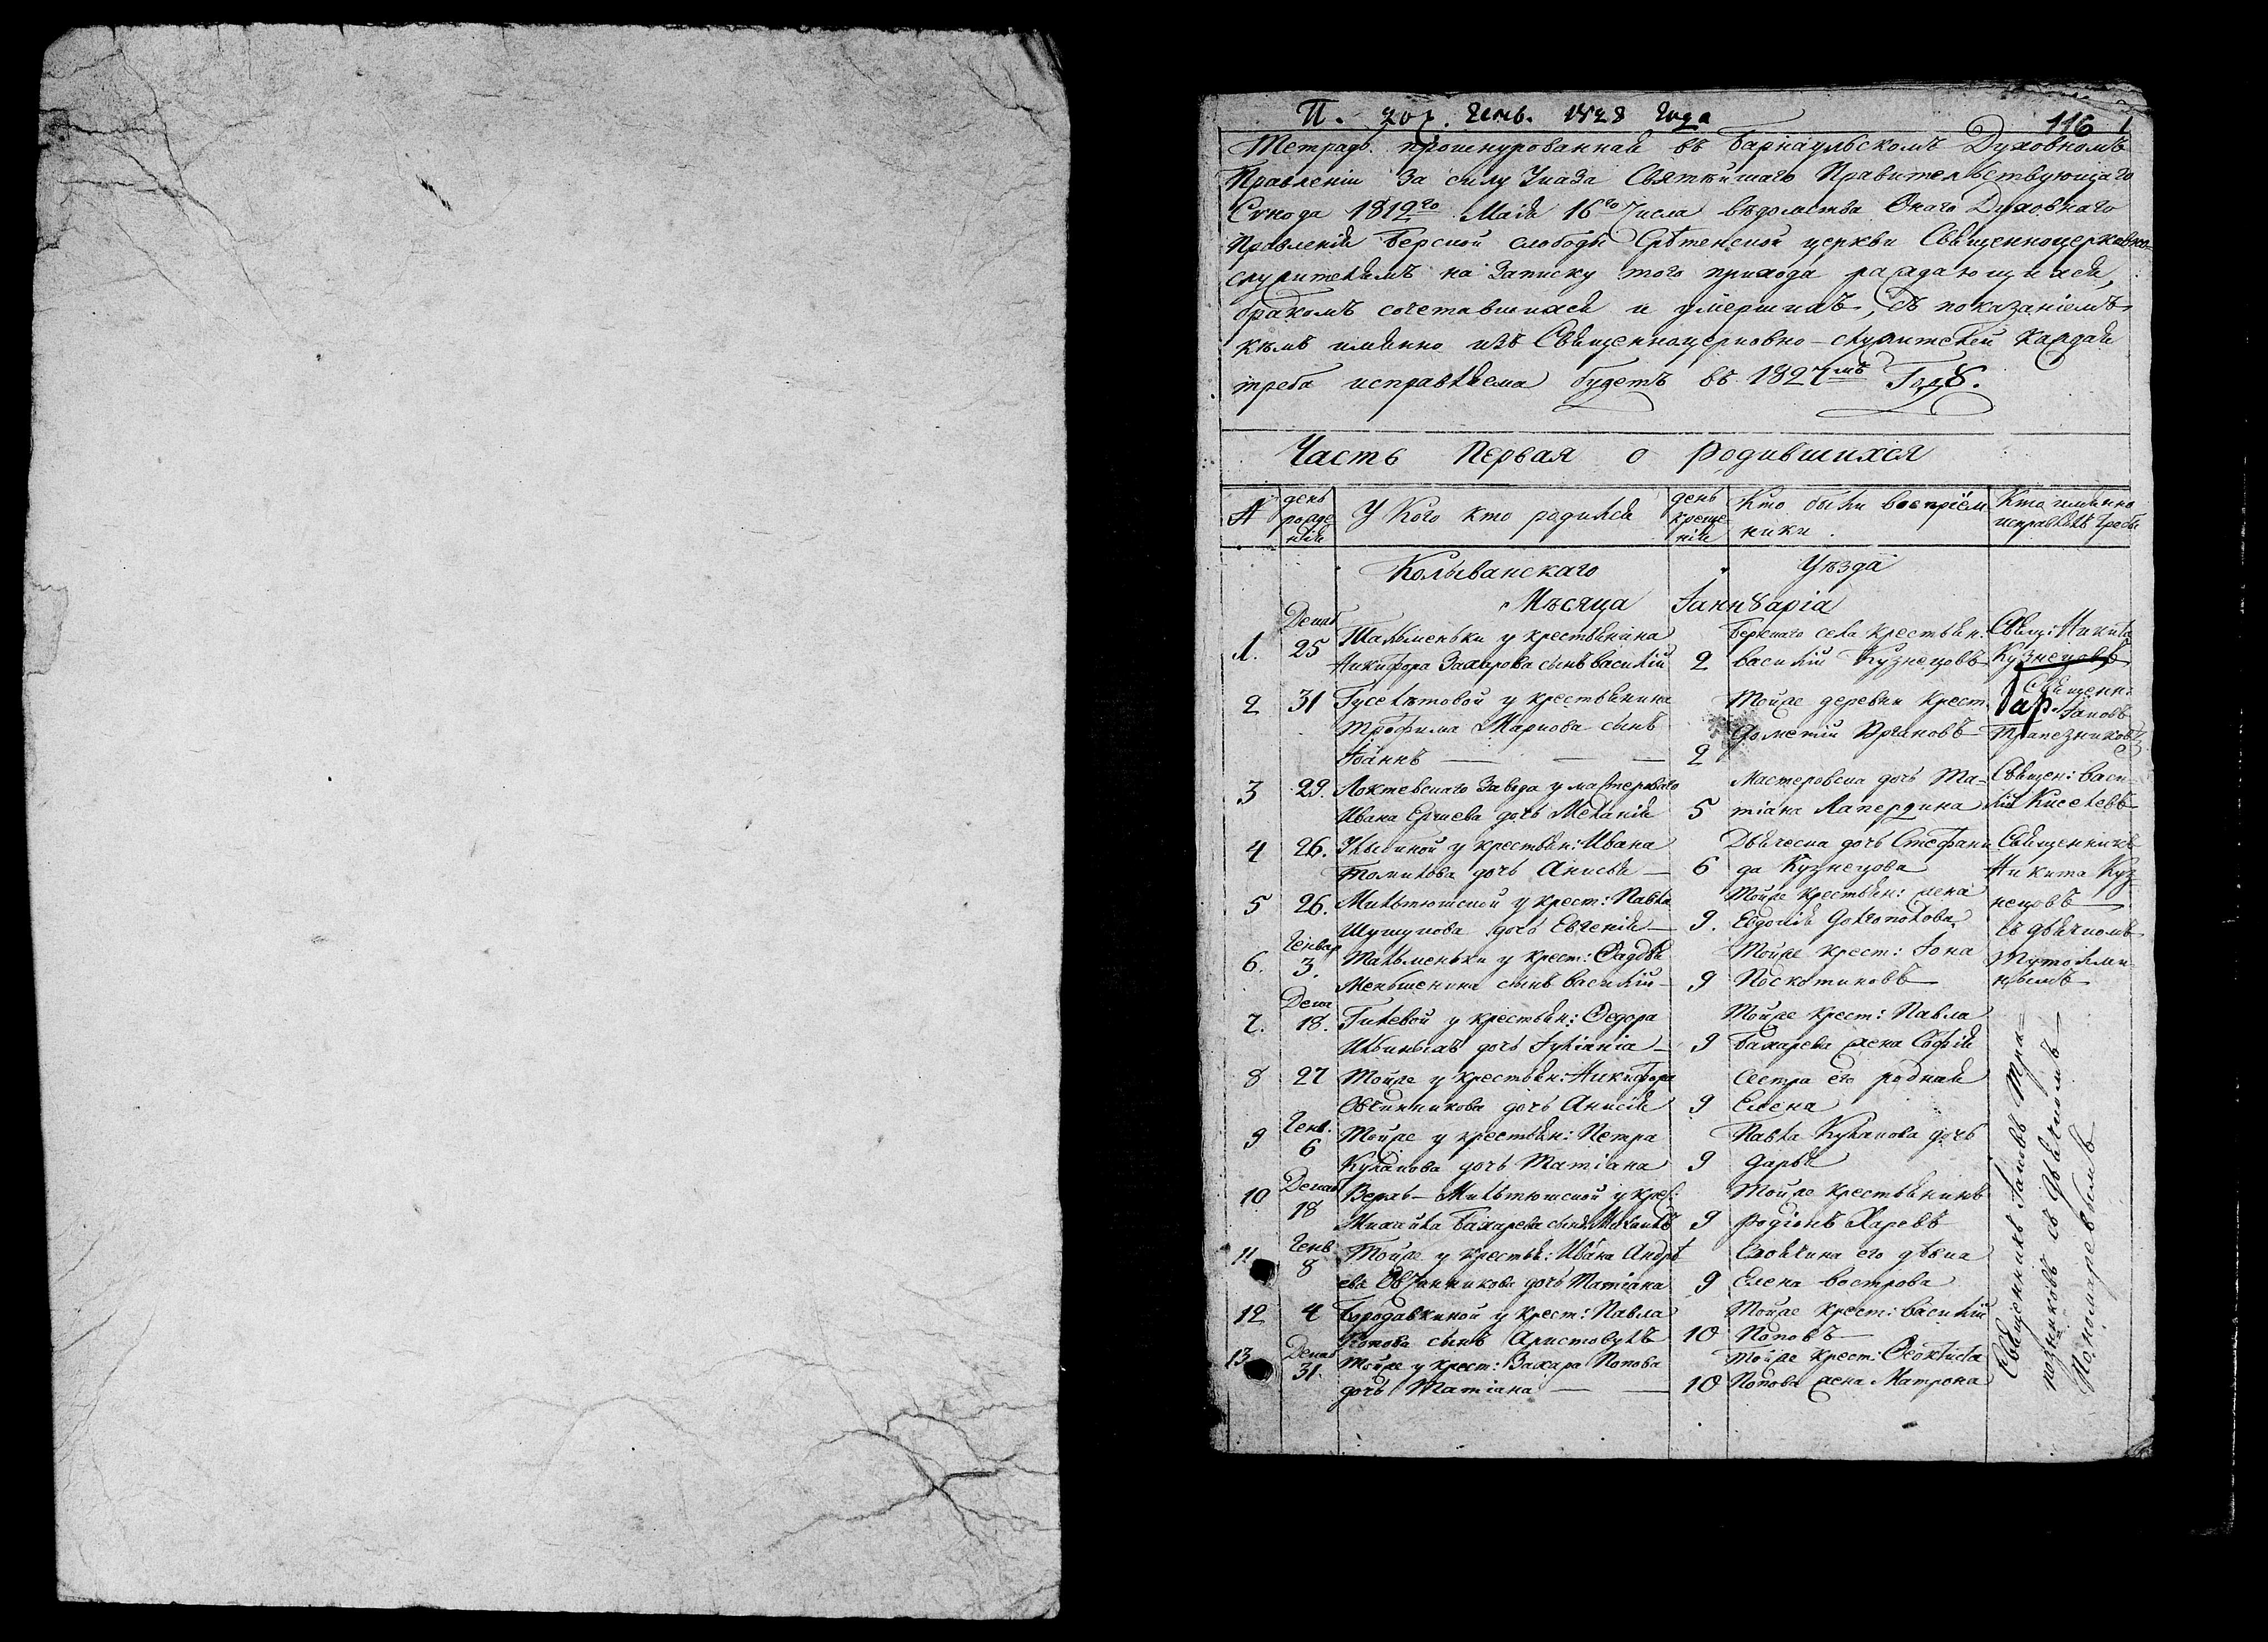 П. 20 7. Генв. 1828 года
116 1
Тетрадь прошнурованная въ Барнаульскомъ Духовномъ
Правленіи За силу Указа Святѣйшаго Правительствующаго
Сѵнода 1812го Маія 16го Числа вѣдомства Онаго Духовнаго
Правленія Берской слободы Срѣтенской церкви Священноцерковно-
служителямъ на Записку того прихода раждающихся,
бракомъ сочетавшихся и умершихъ, съ показаніемъ
кѣмъ именно изъ Священноцерковно-служителей каждая
треба исправляема будетъ въ 1827мъ Годꙋ.
Часть Первая о родившихся
№ день рожденія У Кого кто родился день крещенія Кто были воспріемники Кто именно исправлялъ требы
Колыванскаго Уѣзда
Мѣсяца Іаннꙋаріа
Декаб
1. 25 Тальменьки у крестьянина Берскаго села крестьян: Свящ: Никита
Никифора Захарова сынъ Василій 2 Василій Кузнецовъ Кузнецовъ
2 31 Гуселѣтовой у крестьянина Тойже деревни крест. Священн:
Трофима Маркова сынъ Іаковъ
Іоаннъ 2 Трапезниковъ
3 29. Локтевскаго Завода у мастероваго Мастеровска дочь Та- Священ: Васи-
Ивана Ершева дочь Меланія 5 тіана Лапердина лій Киселевъ
4 26. у крестьян: Ивана Дьячкова дочь Стефани Священникъ
Томилова дочь Анисья 6 да Кузнецова Никита Куз-
5 26. Мильтюшской у крест: Павла Тойже крестьян: жена нецовъ
Шушукова дочь Евгенія 9. Евдокія съ дьячкомъ
Генвар
6. 3. Тальменьки у крест: Фаддѣя Тойже крест: Іона
Меньшенина сынъ Василій 9 Поскотиновъ
Дека
7. 18. Гилевой у крестьян: Федора Тойже крест: Павла
Ильиныхъ дочь Іуліаніа 9 Бахарева жена Софія
8 27 Тойже у крестьян: Никифора Сестра его родная
Овчинникова дочь Анисія 9 Елена
Генв.
9 6 Тойже у крестьян: Петра Павла Кулакова дочь
Кулакова дочь Татіана 9 Дарья
Декаб
10 18 Верхъ-Мильтюшской у крес: Тойже крестьянинъ
Михайла Бахарева сынъ 9 Родіонъ Харевъ
Генв
11 8 Тойже у крестья: Ивана Андрѣ Своячина его дѣвка
ева Овчинникова дочь Татіана 9 Елена Вострова
12 4 Бородавкиной у крест: Павла Тойже крест: Василій
Попова сынъ Аристовулъ 10 Поповъ
Декаб
13 31. Тойже у крест: Захара Попова Тойже крест: Феоктиста
дочь Татіана 10 Попова жена Матрона
Священникъ Іаковъ Тра-
пезниковъ съ Дьячкомъ
Пономаревымъ